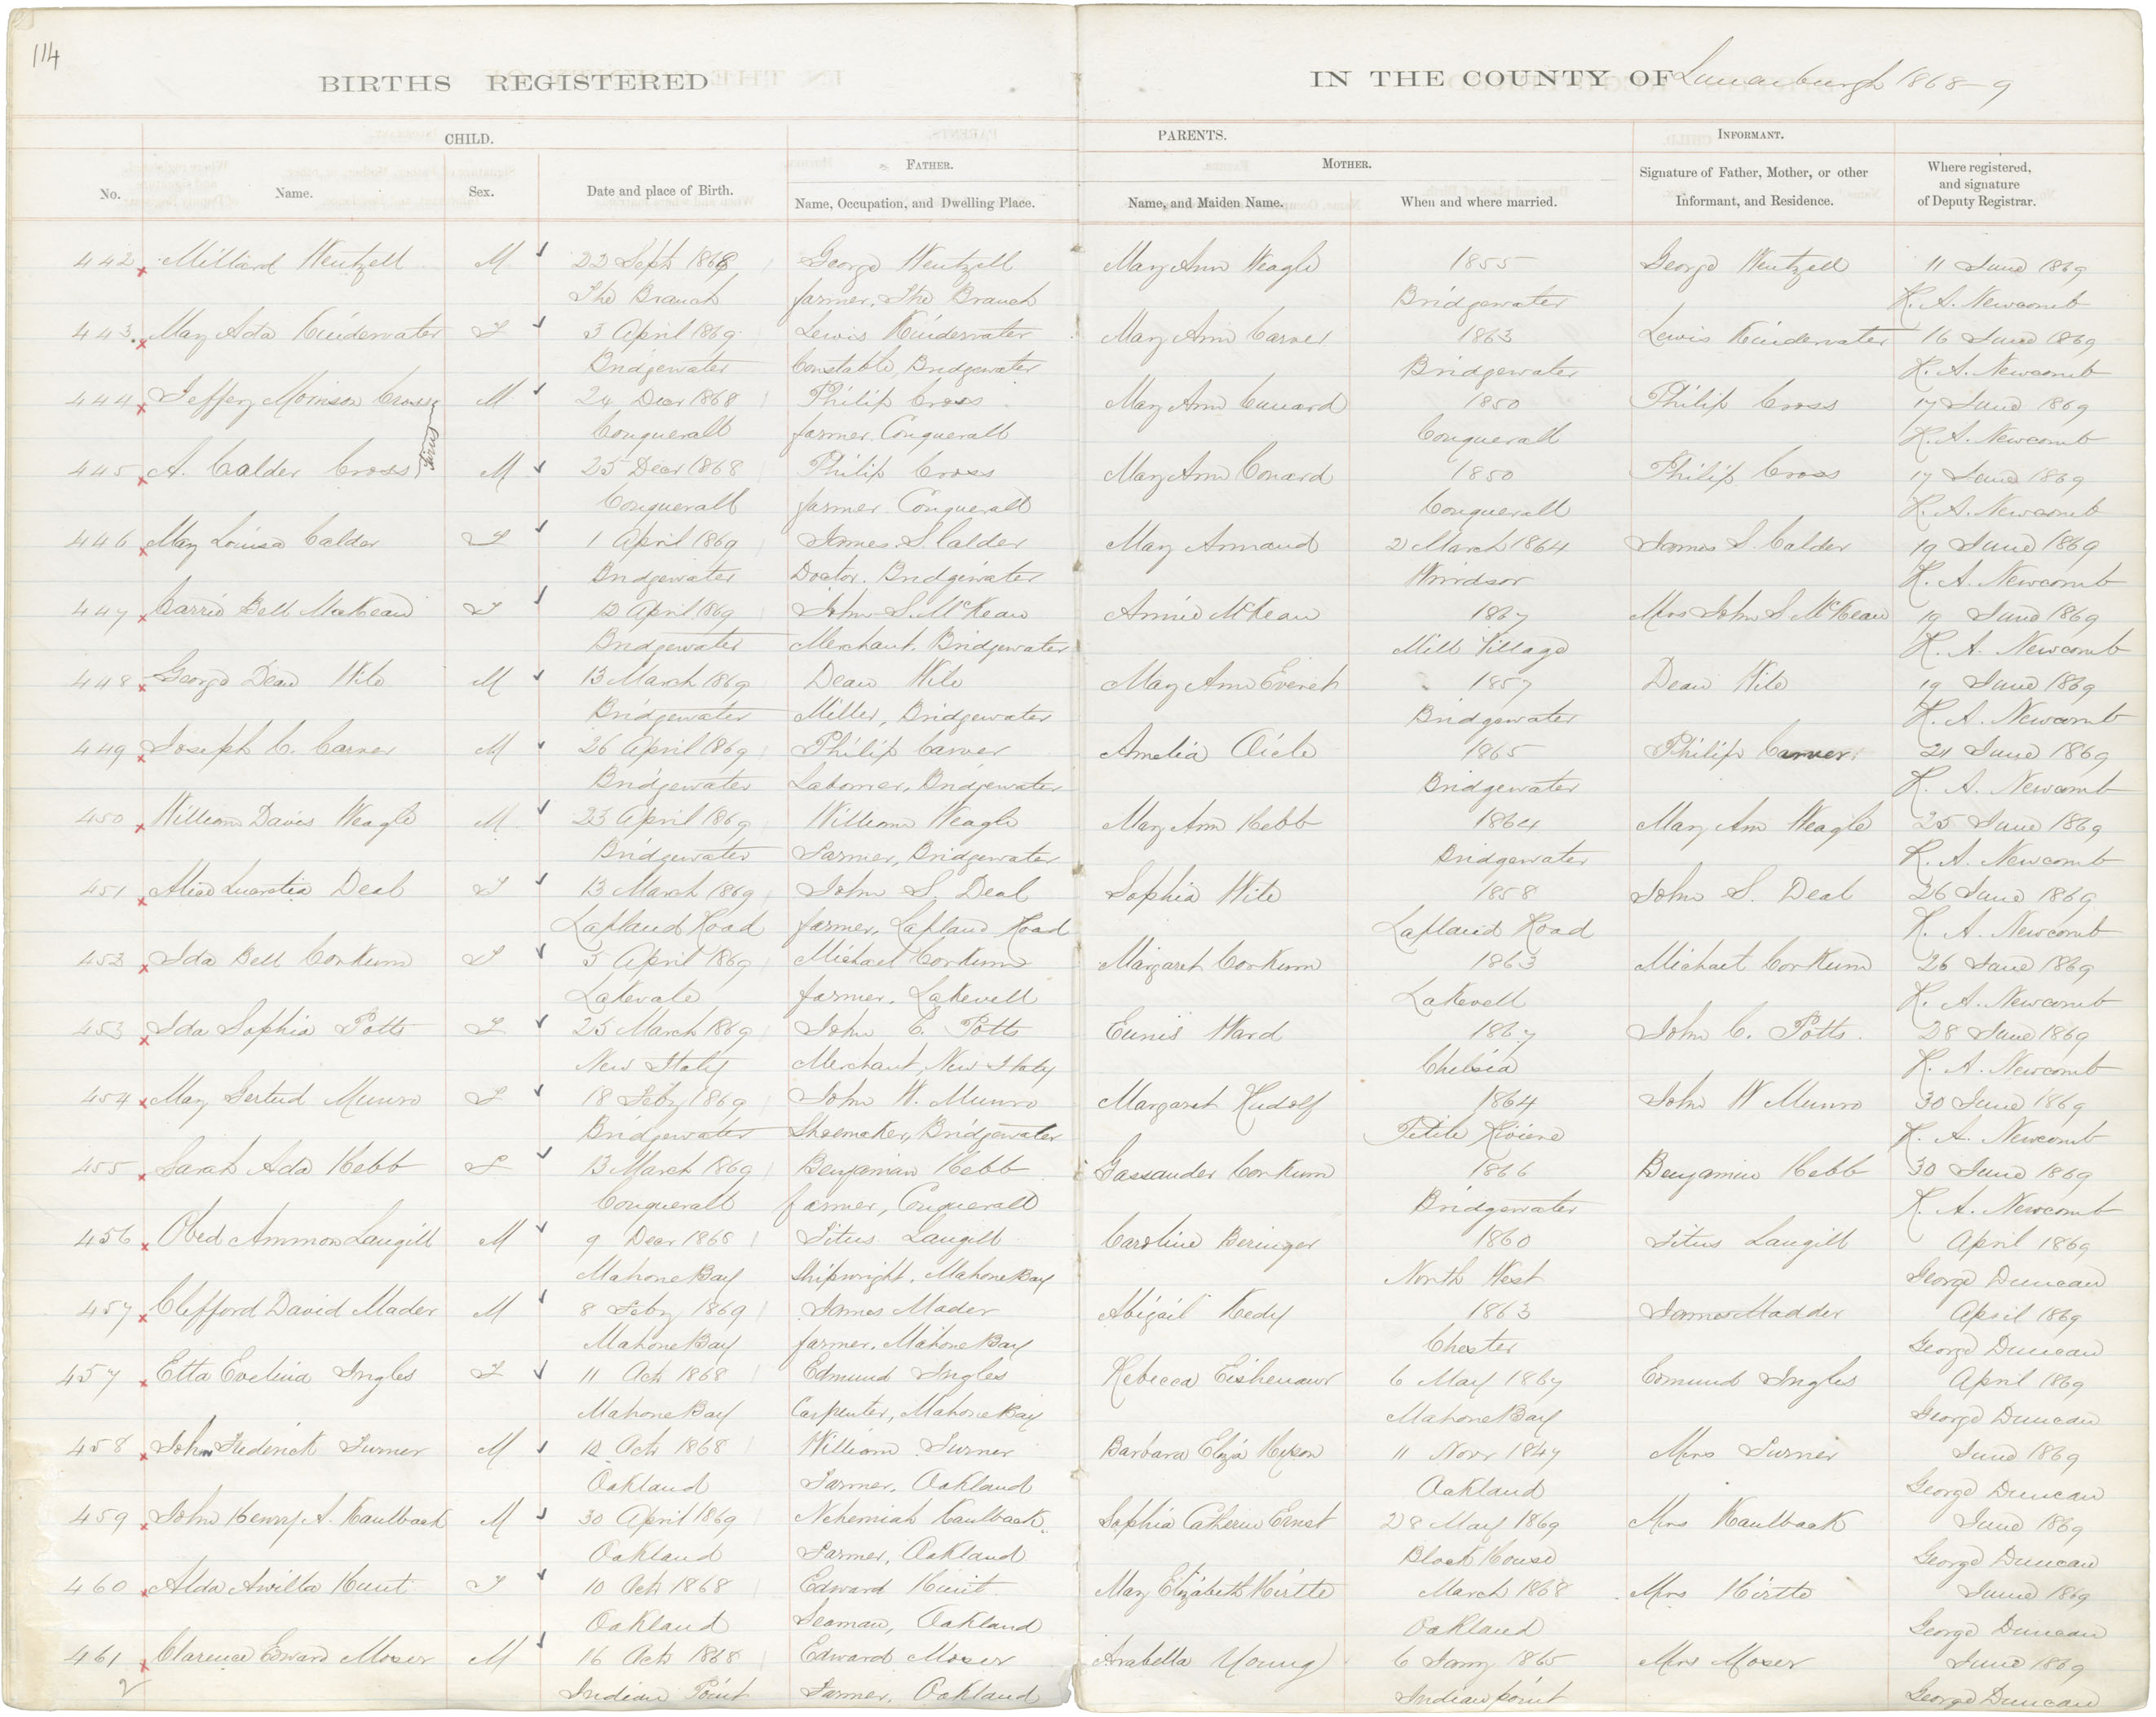 114
BIRTHS REGISTERED IN THE COUNTY OF Lunenburgh 1868-9
CHILD. PARENTS. INFORMANT.
FATHER. MOTHER.
No. Name. Sex. Date and place of Birth. Name, Occupation, and Dwelling Place. Name, and Maiden Name. When and where married. Signature of Father, Mother, or other Informant, and Residence. Where registered, and signature of Deputy Registrar.
442 Millard Wentzell M 22 Sept 1868 George Wentzell Mary Ann Weagle 1855 George Wentzell 11 June 1869
The Branch farmer. The Branch Bridgewater H. A. Newcomb
443 May Ada Kinderwater F 3 April 1869 Lewis Kinderwater Mary Ann Carver 1863 Lewis Kinderwater 16 June 1869
Bridgewater Constable, Bridgewater Bridgewater H. A. Newcomb
444 Jeffery Morrison Cross M 24 Decr 1868 Philip Cross Mary Ann Counard 1850 Philip Cross 17 June 1869
Twins
Conquerall farmer. Conquerall Conquerall H. A. Newcomb
445 A. Calder Cross M 25 Decr 1868 Philip Cross Mary Ann Conard 1850 Philip Cross 17 June 1869
Conquerall farmer. Conquerall Conquerall H. A. Newcomb
446 May Louisa Calder F 1 April 1869 James S. Calder May Armand 2 March 1864 James S. Calder 19 June 1869
Bridgewater Doctor. Bridgewater Windsor H. A. Newcomb
447 Carrie Bell McKean F 12 April 1869 John S. McKean Annie McKean 1867 Mrs John S McKean 19 June 1869
Bridgewater Merchant, Bridgewater Mill Village H. A. Newcomb
448 George Dean Wile M 13 March 1869 Dean Wile May Ann Everett 1857 Dean Wile 19 June 1869
Bridgewater Miller, Bridgewater Bridgewater H. A. Newcomb
449 Joseph C. Carver M 26 April 1869 Philip Carver Amelia Oicle 1865 Philip Carver 21 June 1869
Bridgewater Laborrer, Bridgewater Bridgewater H. A. Newcomb
450 William Davis Weagle M 23 April 1869 William Weagle Mary Ann Hebb 1864 Mary Ann Weagle 25 June 1869
Bridgewater Farmer, Bridgewater Bridgewater H. A. Newcomb
451 Alice Lucretia Deal F 13 March 1869 John S. Deal Sophia Wile 1858 John S. Deal 26 June 1869
Lapland Road farmer, Lapland Road Lapland Road H. A. Newcomb
452 Ida Bell Corkum F 5 April 1869 Michael Corkum Margaret Corkum 1863 Michael Corkum 26 June 1869
Lakevale farmer. Lakevell Lakevell H. A. Newcomb
453 Ida Sophia Potts F 25 March 1869 John C. Potts Eunis Ward 1867 John C. Potts 28 June 1869
New Italy Merchant, New Italy Chelsia H. A. Newcomb
454 May Gertud Munro F 18 Feby 1869 John W. Munro Margaret Rudolf 1864 John W Munro 30 June 1869
Bridgewater Shoemaker, Bridgewater Petite Riviere H. A. Newcomb
455 Sarah Ada Hebb F 13 March 1869 Benjamin Hebb Gassander Corkum 1866 Benjamin Hebb 30 June 1869
Conquerall farmer, Conquerall Bridgewater H. A. Newcomb
456 Obed Ammon Langill M 9 Decr 1868 Titus Langill Caroline Beringer 1860 Titus Langill April 1869
Mahone Bay Shipwright, Mahone Bay North West George Duncan
457 Clifford David Mader M 8 Feby 1869 James Mader Abigail Kedy 1863 James Madder April 1869
Mahone Bay farmer. Mahone Bay Chester George Duncan
457 Etta Evelina Ingles F 11 Oct 1868 Edmund Ingles Rebecca Eishenaur 6 May 1867 Edmund Ingles April 1869
Mahone Bay Carpenter, Mahone Bay Mahone Bay George Duncan
458 John Frederick Turner M 12 Oct 1868 William Turner Barbara Eliza Hyson 11 Novr 1847 Mrs Turner June 1869
Oakland Farmer, Oakland Oakland George Duncan
459 John Henry A. Kaulback M 30 April 1869 Nehemiah Kaulback Sophia Catherin Ernst 28 May 1869 Mrs Kaulback June 1869
Oakland Farmer, Oakland Block House George Duncan
460 Alda Awilla Hunt F 10 Oct 1868 Edward Hunt May Elizabeth Hirtle March 1868 Mrs Hirtle June 1869
Oakland Seaman, Oakland Oakland George Duncan
461 Clarence Edward Moser M 16 Oct 1868 Edward Moser Arabella Young 6 Jany 1865 Mrs Moser June 1869
Indian Point Farmer, Oakland Indian point George Duncan